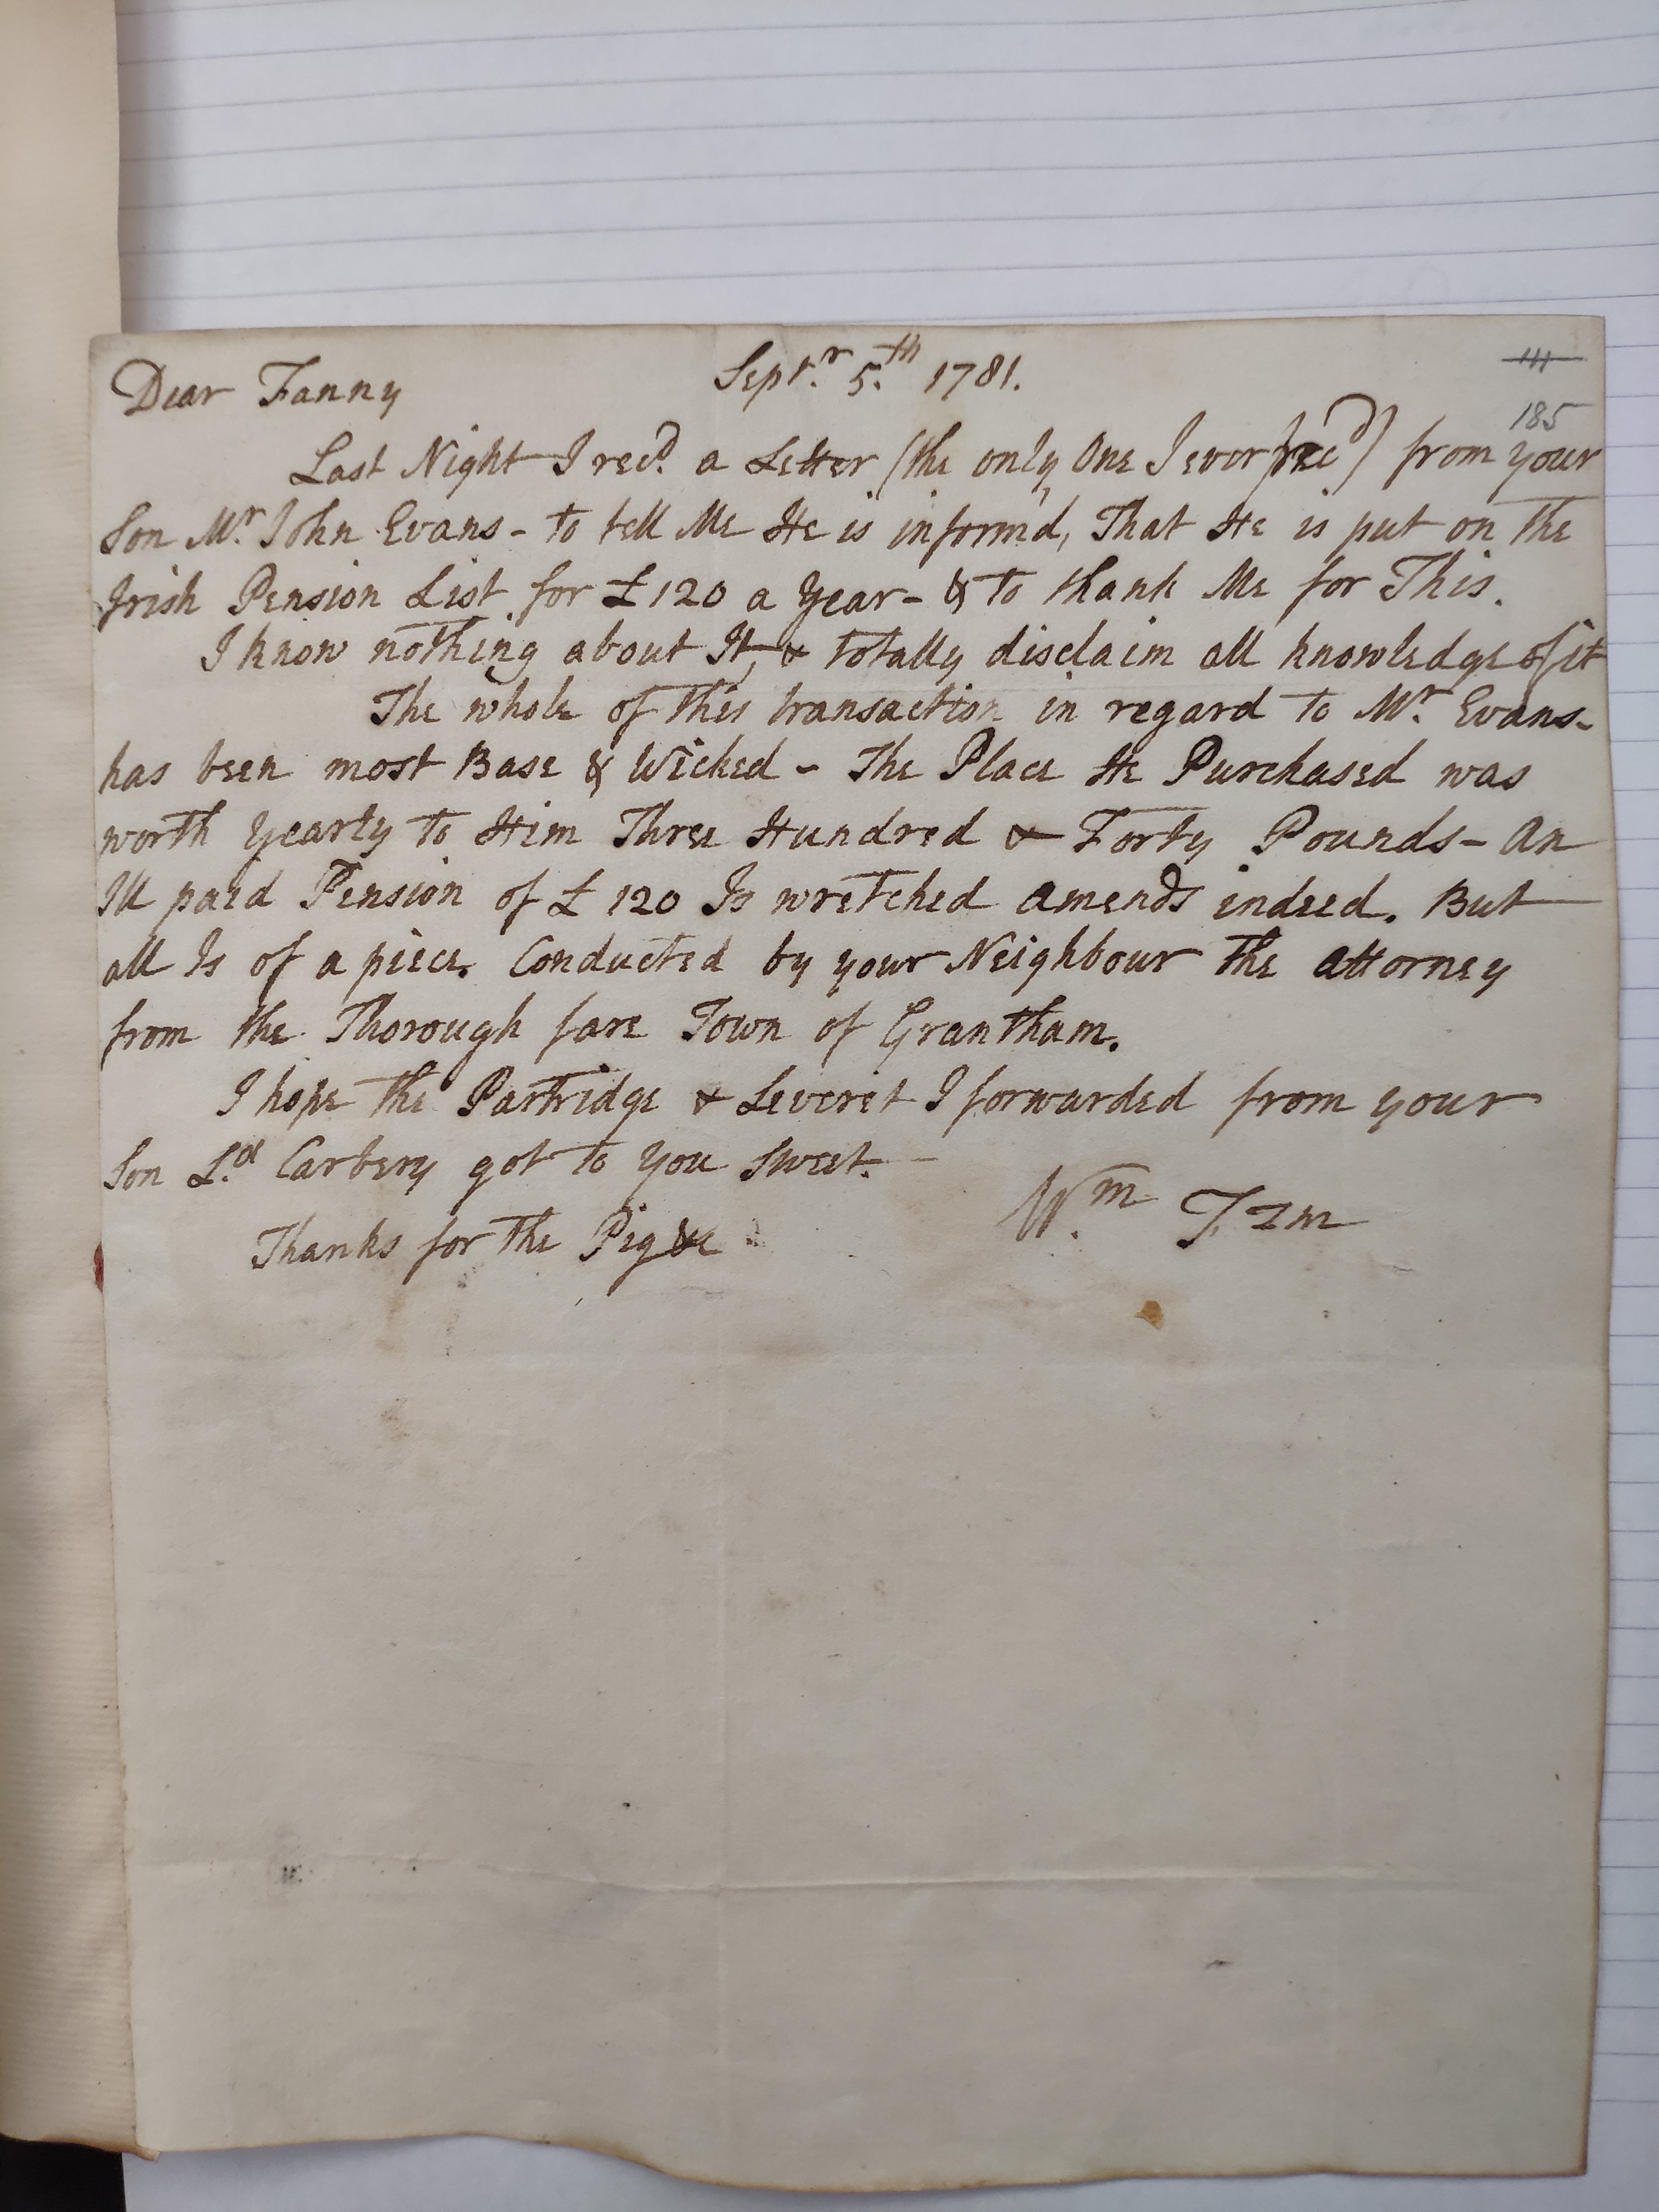 111
185
Dear Fanny Sept.r 5.th 1781.
Last Night I rec.d a Letter (the only One I ever rec'd) from your
Son Mr. John Evans - to tell Me He is inform'd, That He is put on the
Irish Pension List for £120 a Year - & to thank Me for This.
I know nothing about It, & totally disclaim all knowledge of it
The whole of this transaction in regard to Mr. Evans -
has been most Base & Wicked - The Place He Purchased was
worth yearly to Him Three Hundred & Forty Pounds - An
Ill paid Pension of £120 Is wretched amends indeed. But
all Is of a piece. Conducted by your Neighbour the Attorney
from the Thorough fare Town of Grantham.
I hope the Partridge & Leveret I forwarded from your
Son L.d Carbery got to you sweet. -
Thanks for the Pig &c W.m